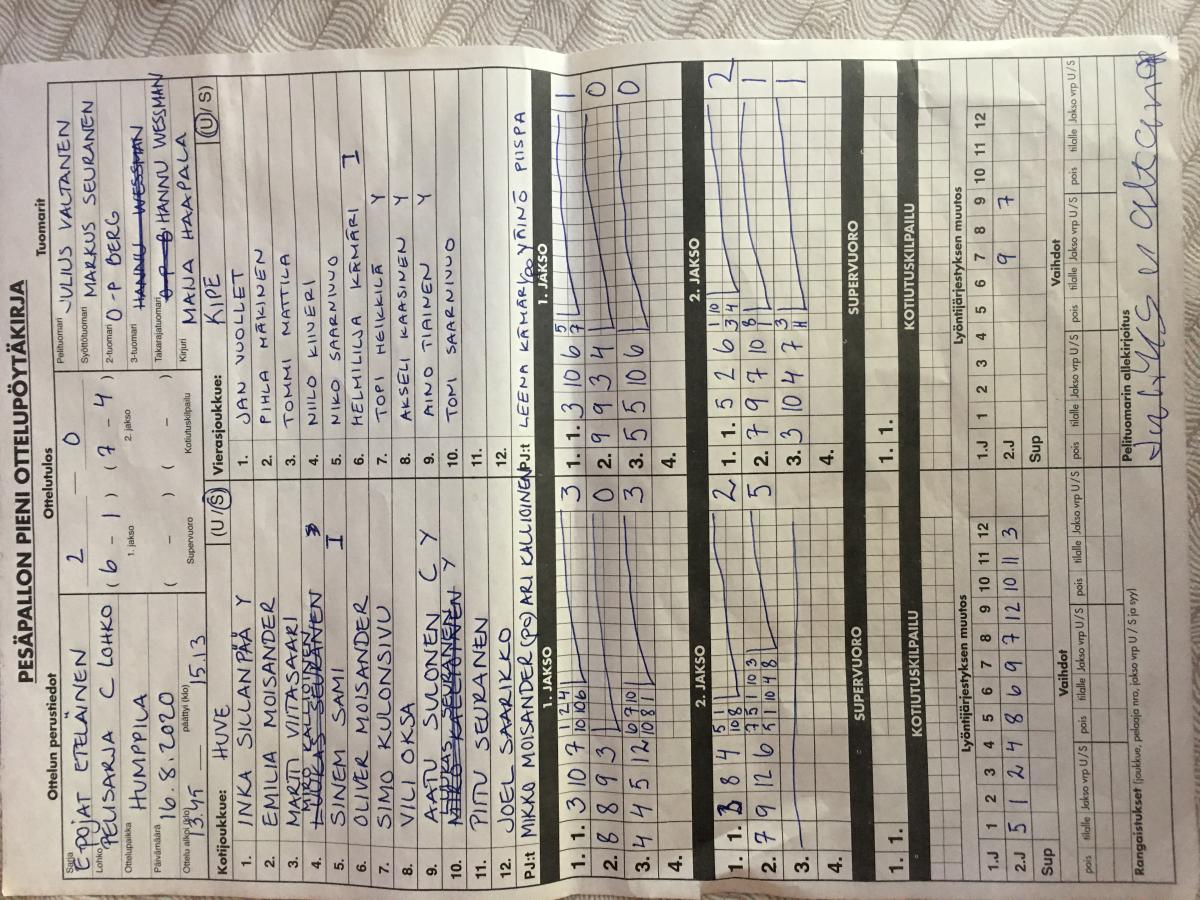 PESÄPALLON PIENI OTTELUPÖYTÄKIRJA
Ottelun perustiedot
Ottelutulos
Tuomarit
Sarja E POJAT ETELÄINEN
Lohko PELISARJA C LOHKO
Ottelupaikka HUMPPILA
Päivämäärä 16.8.2020
Ottelu alkoi (klo) 13.45 päättyi (klo) 15.13
2 — 0
( 6 - 1 ) ( 7 - 4 )
1. jakso 2. jakso
( - ) ( - )
Supervuoro Kotiutuskilpailu
Pelituomari JULIUS VALTANEN
Syöttötuomari MARKUS SEURANEN
2-tuomari O-P BERG
3-tuomari HANNU WESSMAN
Takarajatuomari O-P B HANNU WESSMAN
Kirjuri MAIJA HAAPALA
Kotijoukkue: HUVE (U / S)
1. INKA SILLANPÄÄ Y
2. EMILIA MOISANDER
3. MARTTI VIITASAARI
4. MIRO KALLIOINEN LUUKAS SEURANEN 3
5. SINEM SAMI I
6. OLIVER MOISANDER
7. SIMO KULONSIVU
8. VILI OKSA
9. AATU SULONEN C Y
10. LUUKAS SEURANEN MIRO KALLIOINEN Y
11. PITU SEURANEN
12. JOEL SAARIKKO
PJ:t MIKKO MOISANDER (PJ) ARI KALLIOINEN
Vierasjoukkue: KIPE (U / S)
1. JAN VUOLLET
2. PIHLA MÄKINEN
3. TOMMI MATTILA
4. NIILO KIIVERI
5. NIKO SAARNIVUO
6. HELMILILJA KÄMÄRI I
7. TOPI HEIKKILÄ Y
8. AKSELI KAASINEN Y
9. AINO TIAINEN Y
10. TOMI SAARNIVUO
11.
12.
PJ:t LEENA KÄMÄRI VÄINÖ PIISPA
1. JAKSO 1. JAKSO
1. 1. 3 10 7 3
2. 8 8 9 3 0
3. 4 4 5 12 3
4.
1. 1. 3 10 6 1
2. 9 9 3 4 0
3. 5 5 10 6 0
4.
2. JAKSO 2. JAKSO
1. 1. 3 8 4 2
2. 7 9 12 6 5
3.
4.
1. 1. 5 2 6 2
2. 7 9 7 10 1
3. 3 10 4 7 1
4.
SUPERVUORO SUPERVUORO
1. 1.
1. 1.
KOTIUTUSKILPAILU KOTIUTUSKILPAILU
Lyöntijärjestyksen muutos
1 2 3 4 5 6 7 8 9 10 11 12
1.J
2.J 5 1 2 4 8 6 9 7 12 10 11 3
Sup
Lyöntijärjestyksen muutos
1 2 3 4 5 6 7 8 9 10 11 12
1.J
2.J 9 7
Sup
Vaihdot Vaihdot
pois tilalle Jakso vrp U / S pois tilalle Jakso vrp U / S pois tilalle Jakso vrp U / S
pois tilalle Jakso vrp U / S pois tilalle Jakso vrp U / S pois tilalle Jakso vrp U / S
Rangaistukset (joukkue, pelaaja nro, jakso vrp U / S ja syy)
Pelituomarin allekirjoitus
Julius Valtanen